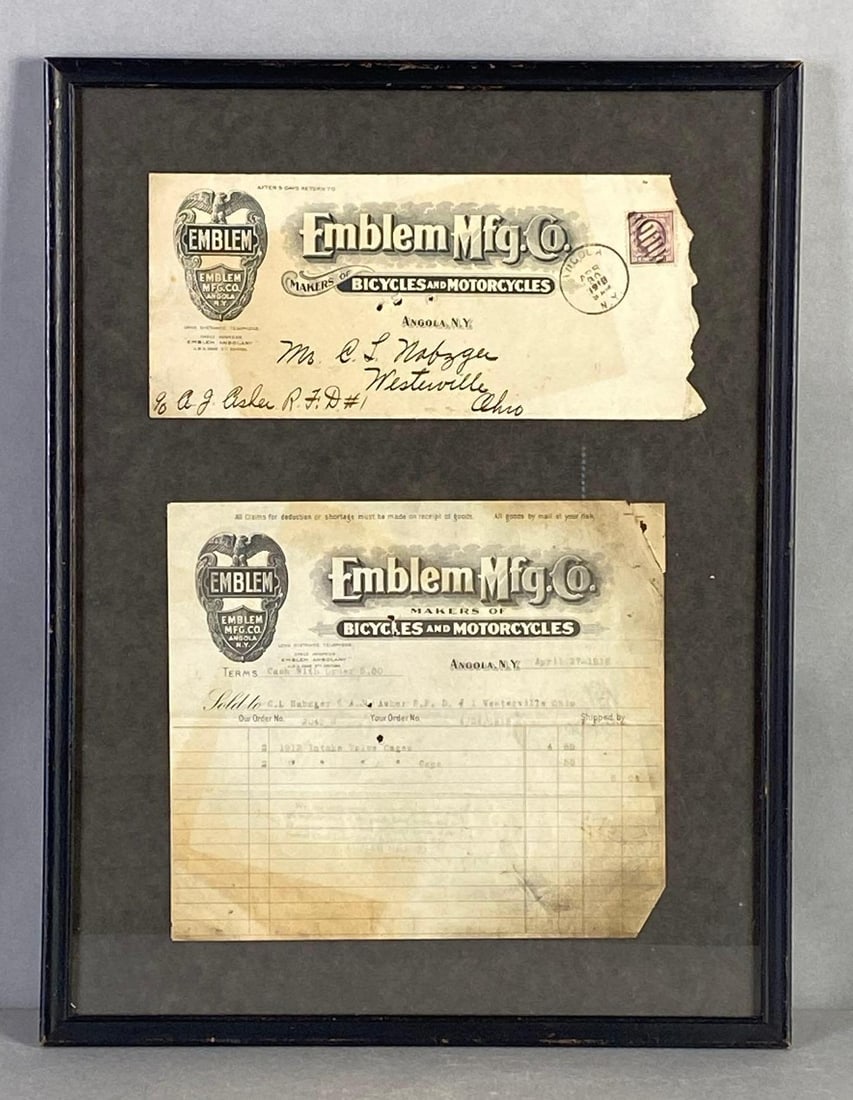 AFTER 5 DAYS RETURN TO
EMBLEM
EMBLEM
MFG.CO.
ANGOLA
N.Y.
LONG DISTANCE TELEPHONE.
EMBLEM ANGOLANY
Emblem Mfg. Co.
MAKERS OF BICYCLES AND MOTORCYCLES
ANGOLA, N.Y.
ANGOLA
1918
N.Y.
Mr. C. L. Nabzger
Westerville
Ohio
% A. J. R. F. D #1
All Claims for deduction or shortage must be made on receipt of goods. All goods by mail at your risk.
EMBLEM
EMBLEM
MFG.CO.
ANGOLA
N.Y.
LONG DISTANCE TELEPHONE
EMBLEM ANGOLANY
Emblem Mfg. Co.
MAKERS OF
BICYCLES AND MOTORCYCLES
ANGOLA, N.Y. April 27-1918
TERMS Cash With Order 5.00
Sold to C.L Nabzger R.F. D. # 1 Westerville Ohio
Our Order No. Your Order No. Shipped by
2 1912 Intake Valve Cages 4 50
2 " " " " Caps 50